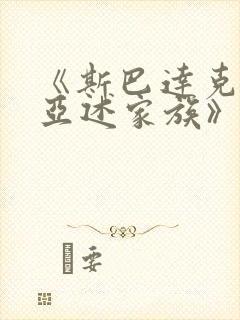 《斯巴达克
亚述家族》
要